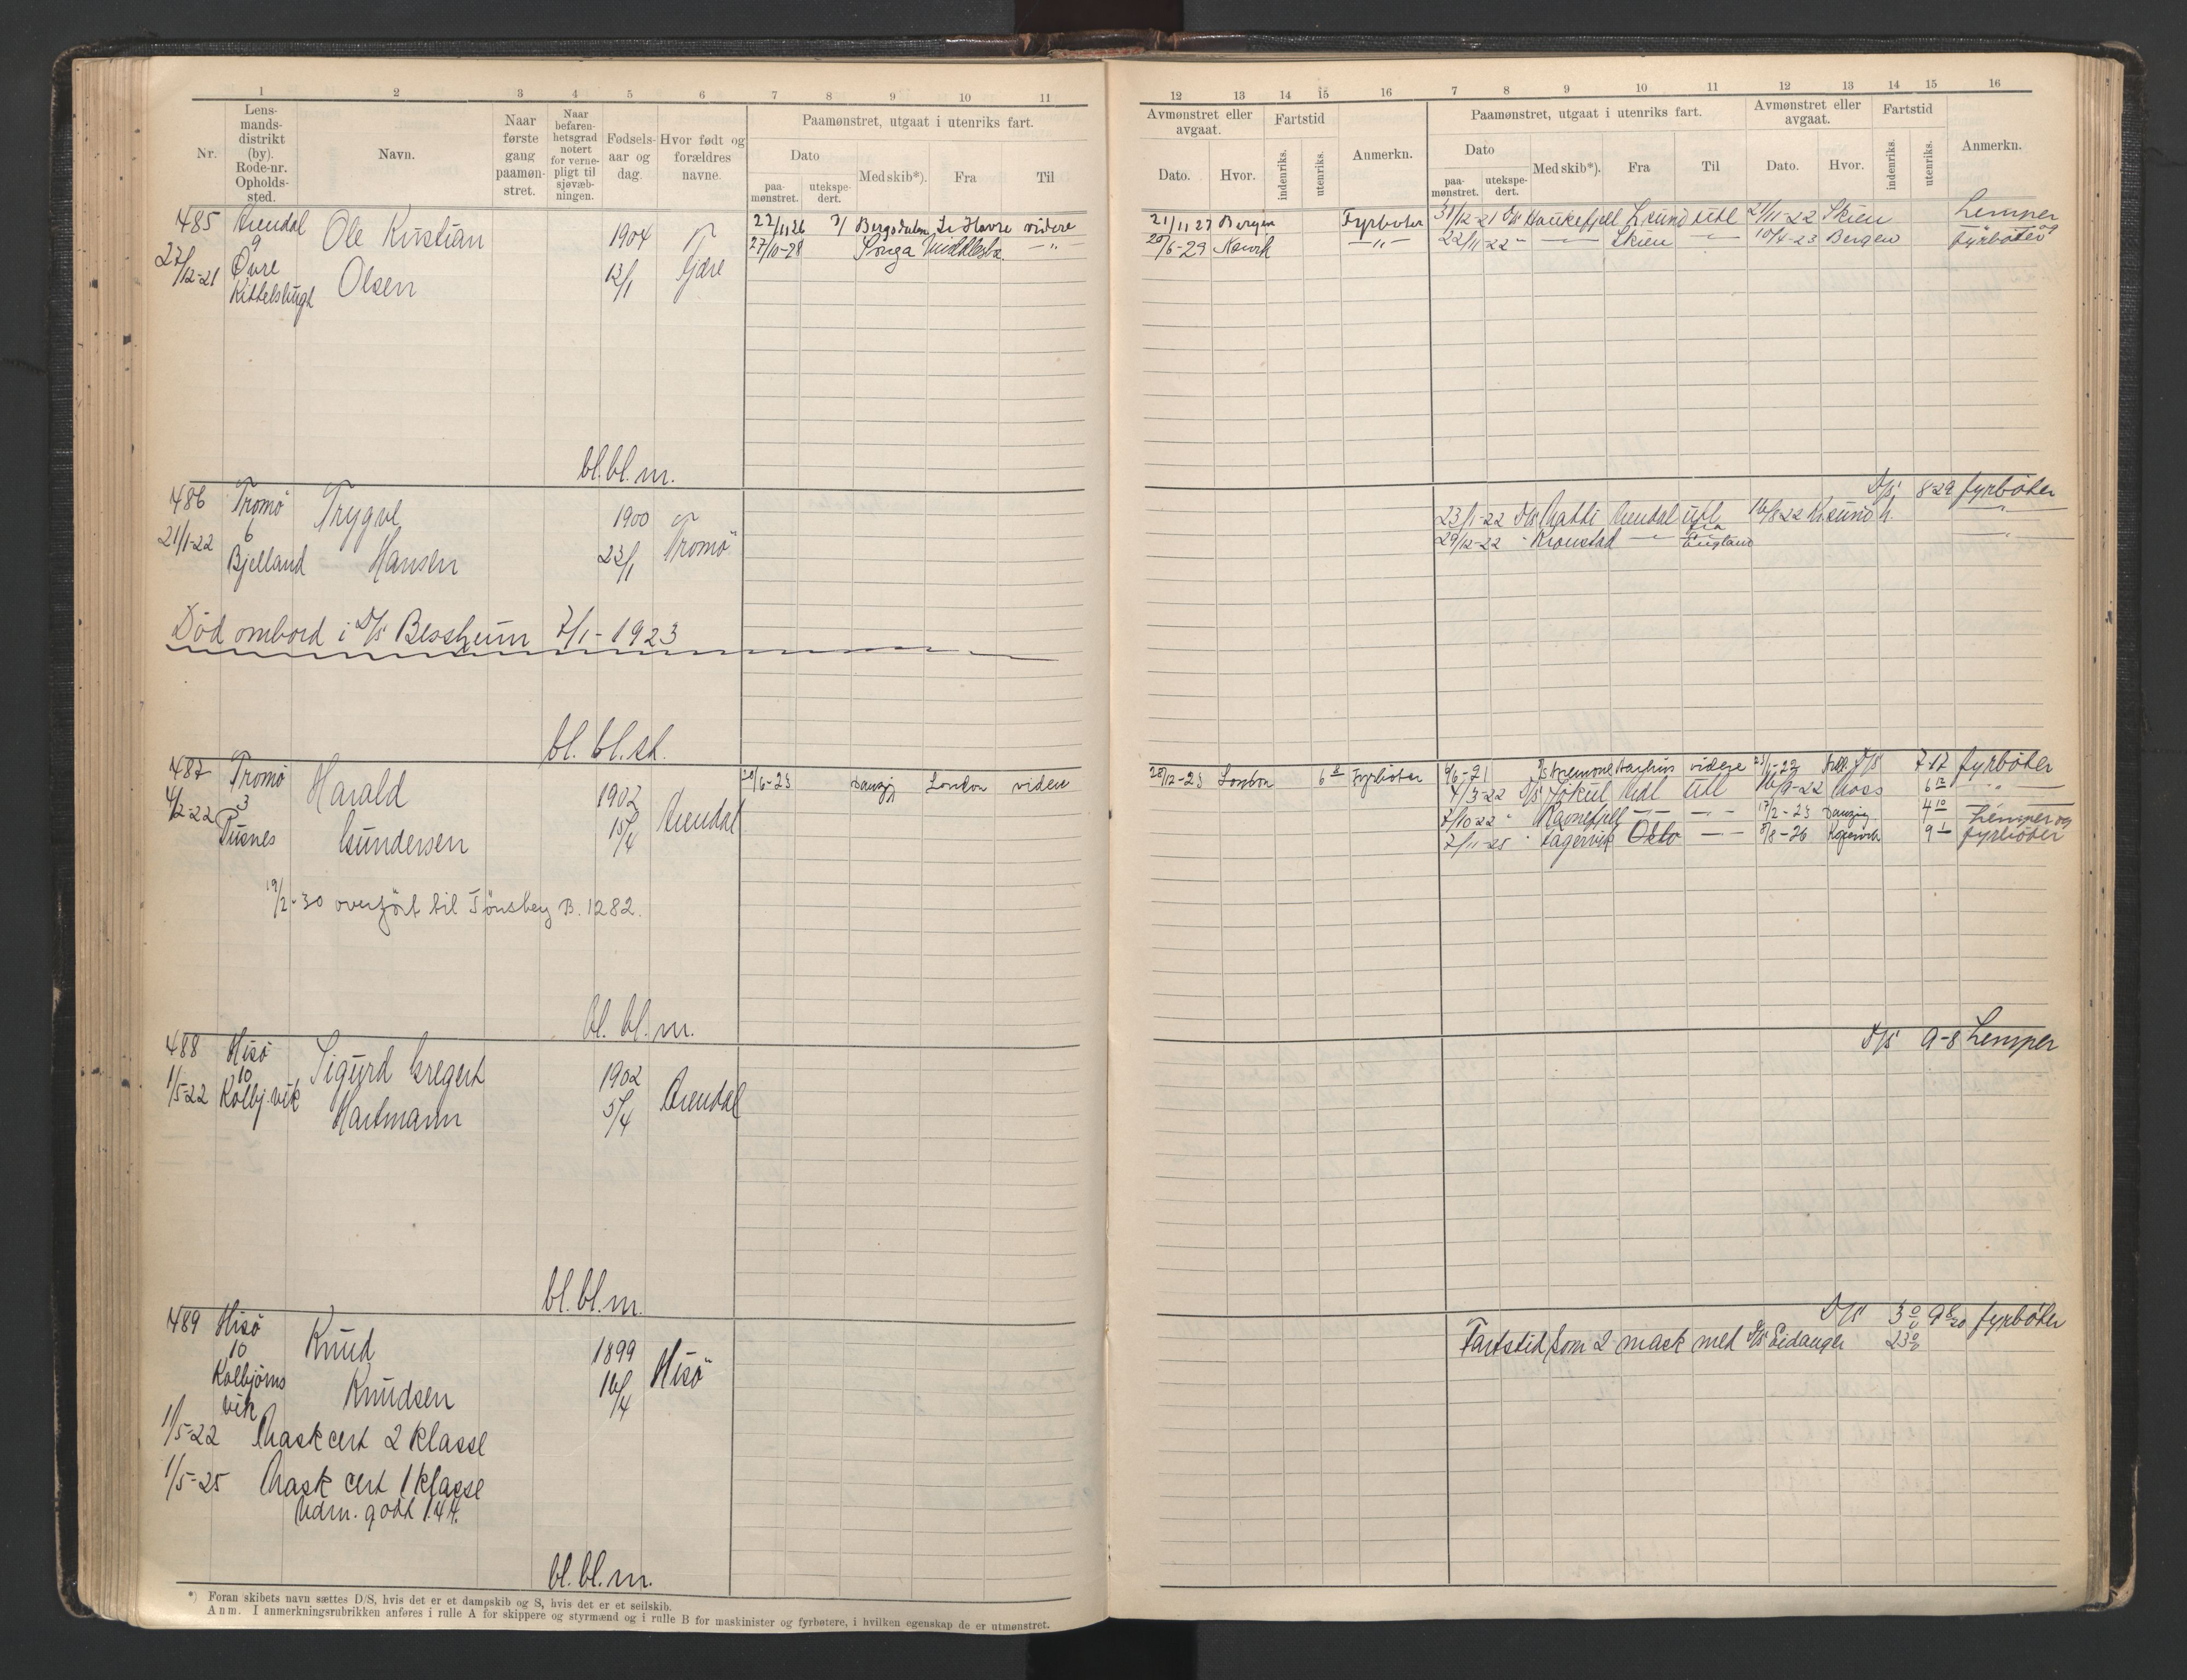 1 2 3 4 5 6 7 8 9 10 11
Nr.
Lens-
mands-
distrikt
(by).
Rode-nr.
Opholds-
sted.
Navn.
Naar
første
gang
paamøn-
stret.
Naar
befaren-
hetsgrad
notert
for verne-
pligt til
sjøvæb-
ningen.
Fødsels-
aar og
dag.
Hvor født og
forældres
navne.
Paamønstret, utgaat i utenriks fart.
Dato
paa-
mønstret.
utekspe-
dert.
Med skib*).
Fra
Til
485 Arendal Ole Kristian 1904
9
27/12-21 Øvre Olsen 13/1 Tjøre
Kittelsbugt
22/11 26 Bergsdalen Le Havre videre
27/10-28 Songa Middlesbr. —"—
bl. bl. m.
486 Tromö Trygve 1900
21/1-22 6 23/1 Tromö
Bjelland Hansen
Död ombord i D/S Bessheim 7/1-1923
bl. bl. st.
487 Tromö Harald 1902
4/2-22 3 15/4 Arendal
Pusnes Gundersen
/6-23 Danzig London videre
19/2-30 overført til Tønsberg B. 1282.
bl. bl. m.
488 Hisö Sigurd Gregert 1902
10
1/5-22 Kolbj.vik Hartmann 5/4 Arendal
bl. bl. m.
489 Hisö Knud 1899
10
Kolbjörns Knudsen 16/4 Hisö
vik
1/5-22 Mask cert 2 klasse
1/5-25 Mask cert 1 klasse
Udm. godt 1.44.
bl. bl. m.
*) Foran skibets navn sættes D/S, hvis det er et dampskib og S, hvis det er et seilskib.
Anm. I anmerkningsrubrikken anføres i rulle A for skippere og styrmænd og i rulle B for maskinister og fyrbøtere, i hvilken egenskap de er utmønstret.
12 13 14 15 16 7 8 9 10 11 12 13 14 15 16
Avmønstret eller
avgaat.
Dato.
Hvor.
Fartstid
indenriks.
utenriks.
Anmerkn.
Paamønstret, utgaat i utenriks fart.
Dato
paa-
mønstret.
utekspe-
dert.
Med skib*).
Fra
Til
Avmønstret eller
avgaat.
Dato.
Hvor.
Fartstid
indenriks.
utenriks.
Anmerkn.
21/11 27 Bergen Fyrböter 31/12-21 D/S Haukefjell Lsund utl 21/11-22 Skien Lemper
20/6-29 Narvik —"— 22/11-22 " — Skien — 10/4-23 Bergen og fyrböter
D/S 8-29 fyrböter
23/1-22 D/S Matti Arendal utl 16/8 22 Krsund n. — " —
29/12-22 " Kronstad — " — fra England — " —
28/12-23 London 6 8 Fyrböter
6/6-21 Aarhus videre D/S 7-17 fyrböter
4/3-22 D/S Jökul Adl utl 16/9-22 Moss 6 12 — " —
7/10 22 " Ravnefjell — — " — 17/2-23 Danzig 4 10 Lemper og
7/11-25 " Fagervik Oslo — " — 8/8-26 9 1 fyrböter
D/S 9-8 Lemper
D/S 3 0/0 9 8/20 fyrböter
Fartstid som 2 mask med D/S Eidanger 23 0/0